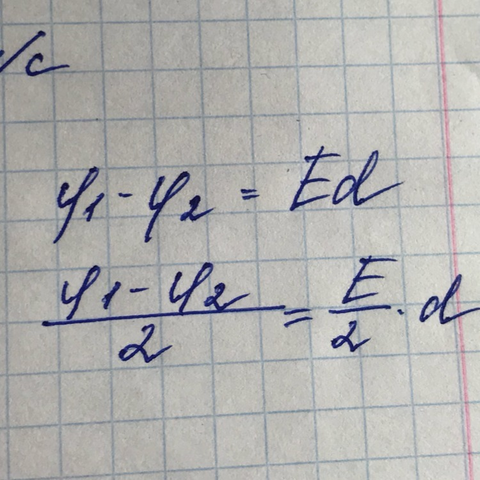 /с
φ₁ - φ₂ = Ed
(φ₁ - φ₂)/2 = E/2 · d